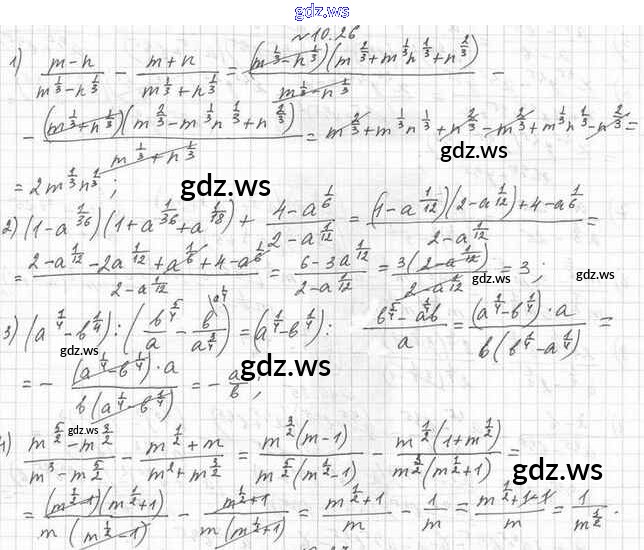 gdz.ws
№10.26
1) (m-n)/(m^{1/3}-n^{1/3}) - (m+n)/(m^{1/3}+n^{1/3}) = (m^{1/3}-n^{1/3})(m^{2/3}+m^{1/3}n^{1/3}+n^{2/3})/(m^{1/3}-n^{1/3}) -
- (m^{1/3}+n^{1/3})(m^{2/3}-m^{1/3}n^{1/3}+n^{2/3})/(m^{1/3}+n^{1/3}) = m^{2/3}+m^{1/3}n^{1/3}+n^{2/3}-m^{2/3}+m^{1/3}n^{1/3}-n^{2/3} =
= 2m^{1/3}n^{1/3};
gdz.ws gdz.ws
2) (1-a^{1/36})(1+a^{1/36}+a^{1/18}) + (4-a^{1/6})/(2-a^{1/12}) = ((1-a^{1/12})(2-a^{1/12})+4-a^{1/6})/(2-a^{1/12}) =
= (2-a^{1/12}-2a^{1/12}+a^{1/6}+4-a^{1/6})/(2-a^{1/12}) = (6-3a^{1/12})/(2-a^{1/12}) = 3(2-a^{1/12})/(2-a^{1/12}) = 3;
gdz.ws
3) (a^{1/4}-b^{1/4}):(b^{5/4}/a - b/a^{3/4}) = (a^{1/4}-b^{1/4}): (b^{5/4}-a^{1/4}b)/a = (a^{1/4}-b^{1/4})·a/(b(b^{1/4}-a^{1/4})) =
gdz.ws gdz.ws
= - (a^{1/4}-b^{1/4})·a/(b(a^{1/4}-b^{1/4})) = -a/b;
4) (m^{5/2}-m^{3/2})/(m^3-m^{5/2}) - (m^{1/2}+m)/(m^2+m^{3/2}) = m^{3/2}(m-1)/(m^{5/2}(m^{1/2}-1)) - m^{1/2}(1+m^{1/2})/(m^{3/2}(m^{1/2}+1)) =
gdz.ws gdz.ws
= (m^{1/2}-1)(m^{1/2}+1)/(m(m^{1/2}-1)) - (m^{1/2}+1)/(m(m^{1/2}+1)) = (m^{1/2}+1)/m - 1/m = (m^{1/2}+1-1)/m = 1/m^{1/2}.